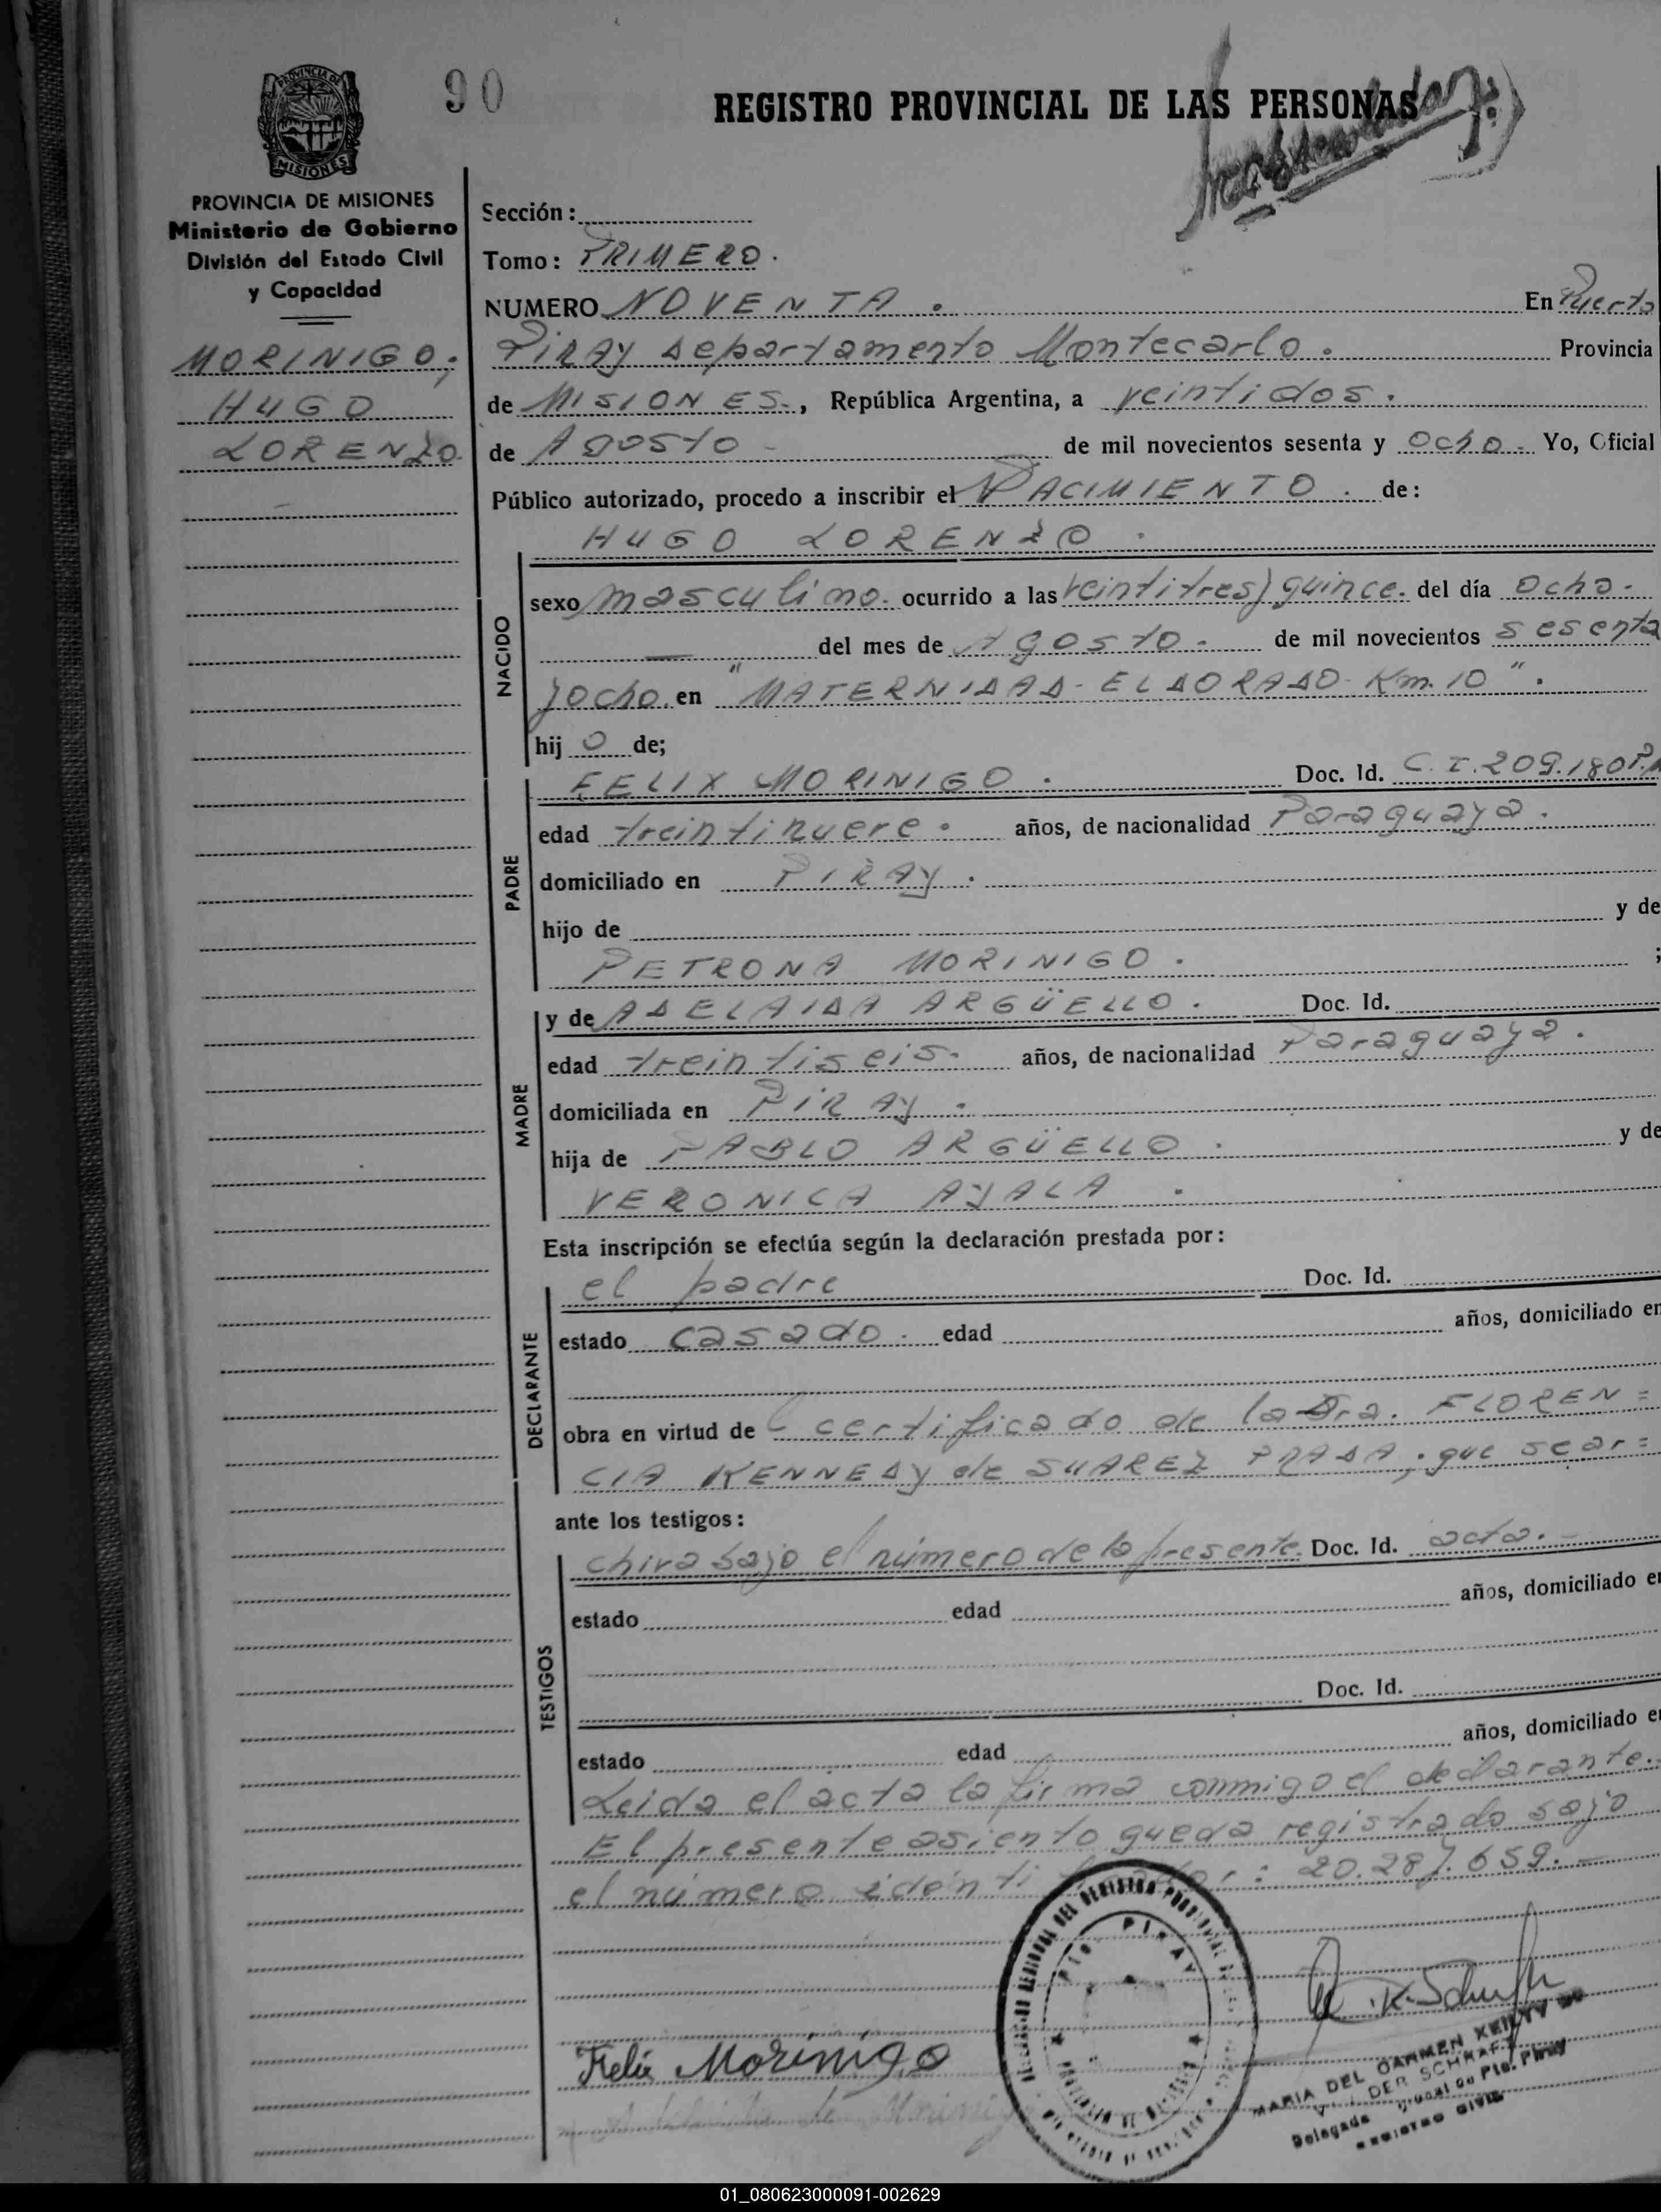 90
REGISTRO PROVINCIAL DE LAS PERSONAS
PROVINCIA DE
MISIONES
PROVINCIA DE MISIONES
Ministerio de Gobierno
División del Estado Civil
y Capacidad
MORINIGO,
HUGO
LORENZO.
Sección:
Tomo: PRIMERO.
NUMERO NOVENTA. En Puerto
PIRAY departamento Montecarlo. Provincia
de MISIONES., República Argentina, a veintidos.
de Agosto - de mil novecientos sesenta y ocho. Yo, Oficial
Público autorizado, procedo a inscribir el NACIMIENTO. de:
HUGO LORENZO.
NACIDO
sexo masculino. ocurrido a las veintitres y quince. del día ocho.
— del mes de Agosto. de mil novecientos sesenta
y ocho. en "MATERNIDAD-ELDORADO-Km.10".
hij o de;
PADRE
FELIX MORINIGO. Doc. Id. C.I.209.180P.
edad treintinueve. años, de nacionalidad Paraguaya.
domiciliado en PIRAY.
hijo de y de
PETRONA MORINIGO. ;
MADRE
y de ADELAIDA ARGÜELLO. Doc. Id.
edad treintiseis. años, de nacionalidad Paraguaya.
domiciliada en PIRAY.
hija de PABLO ARGÜELLO. y de
VERONICA AYALA.
Esta inscripción se efectúa según la declaración prestada por:
DECLARANTE
el padre Doc. Id.
estado casado. edad años, domiciliado en
obra en virtud de certificado de la Dra. FLOREN=
CIA KENNEDY de SUAREZ PRADA, que se ar=
ante los testigos:
TESTIGOS
chiva bajo el número de la presente. Doc. Id. acta.
estado edad años, domiciliado en
Doc. Id.
estado edad años, domiciliado en
Leida el acta la firma conmigo el declarante.
El presente asiento queda registrado bajo
el número identi : 20.287.659.-
PTO. PIRAY
Felix Morinigo
MARIA DEL CARMEN
DER SCHRAFT
Delegada Pto. Piray
REGISTRO CIVIL
01_080623000091-002629